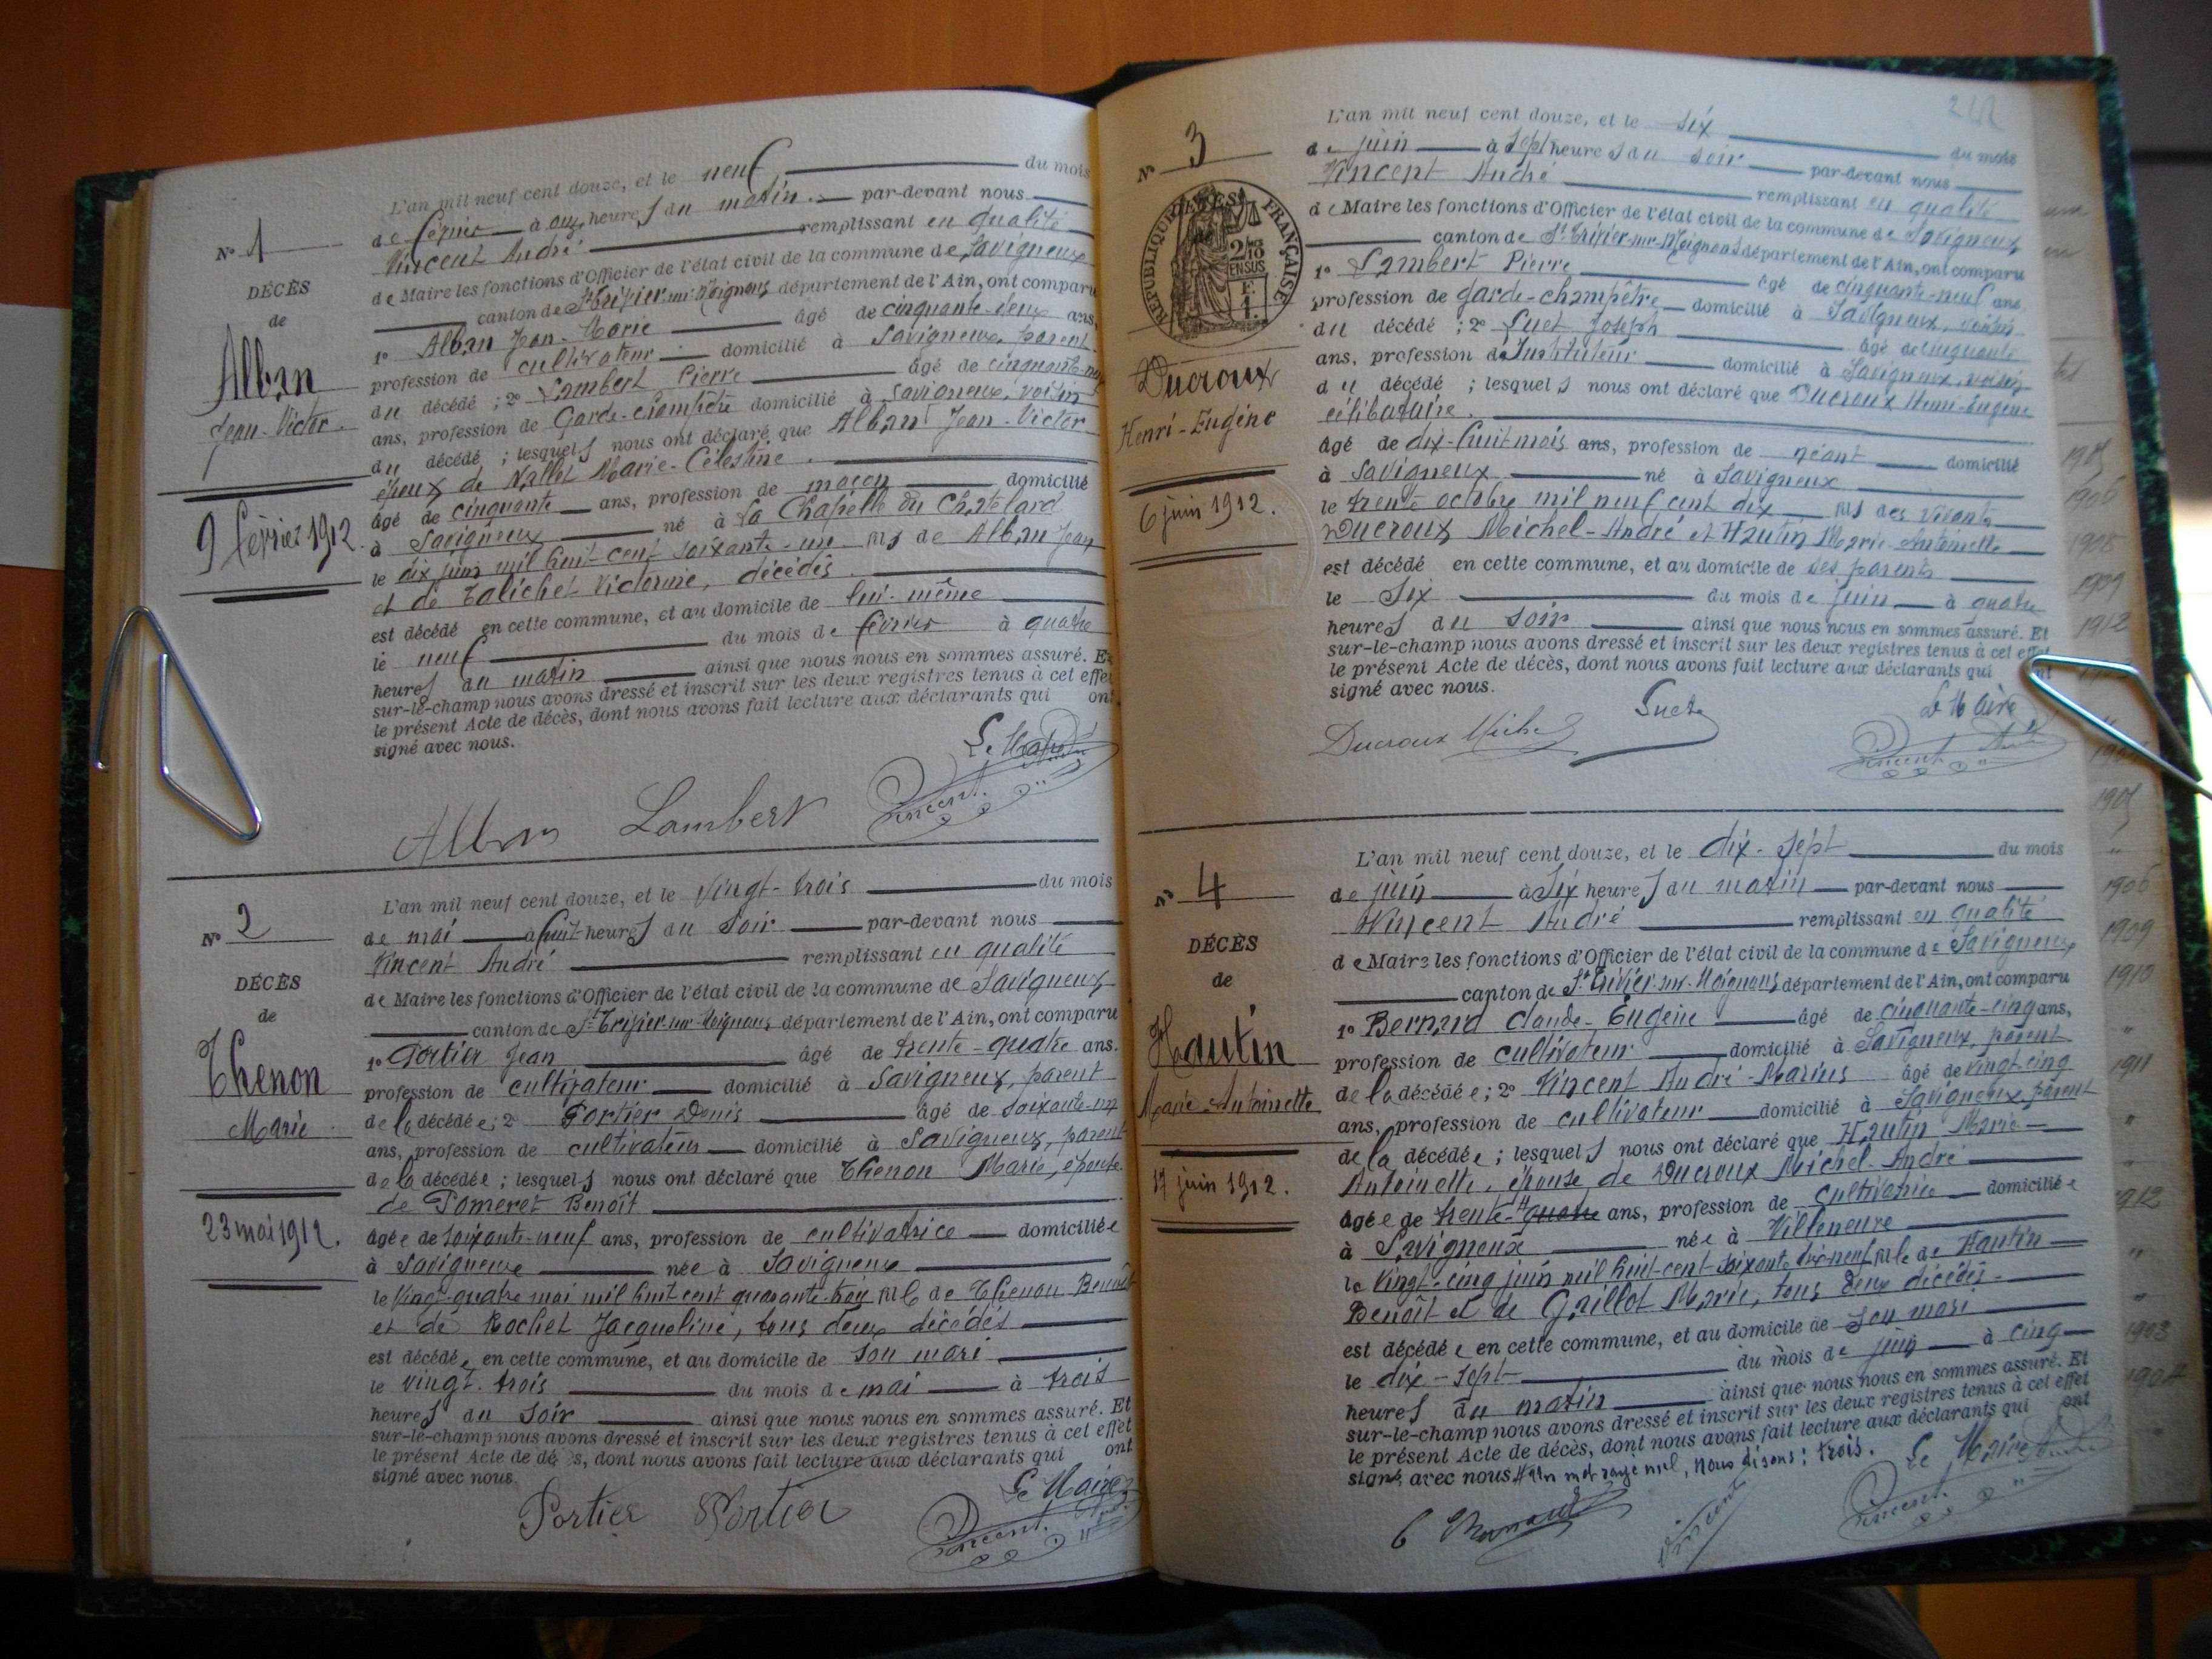 L'an mil neuf cent douze, et le neuf du mois
de février à onze heures du matin par-devant nous
Vincent André remplissant en qualité
de Maire les fonctions d'Officier de l'état civil de la commune de Savigneux
canton de St Trivier-sur-Moignans département de l'Ain, ont comparu
1° Alban Jean-Marie âgé de cinquante-deux ans,
profession de cultivateur domicilié à Savigneux, parent
du décédé ; 2° Lambert Pierre âgé de cinquante-neuf
ans, profession de Garde-champêtre domicilié à Savigneux, voisin
du décédé ; lesquels nous ont déclaré que Alban Jean-Victor
époux de Nallet Marie-Célestine.
âgé de cinquante ans, profession de maçon domicilié
à Savigneux né à La Chapelle du Chatelard
le dix juin mil huit-cent soixante-un fils de Alban Jean
et de Talichet Victorine, décédés
est décédé en cette commune, et au domicile de lui-même
le neuf du mois de février à quatre
heures du matin ainsi que nous nous en sommes assuré. Et
sur-le-champ nous avons dressé et inscrit sur les deux registres tenus à cet effet
le présent Acte de décès, dont nous avons fait lecture aux déclarants qui ont
signé avec nous.
Le Maire
Alban Lambert Vincent
N° 1
DÉCÈS
de
Alban
Jean-Victor.
9 février 1912.
L'an mil neuf cent douze, et le vingt-trois du mois
de mai à huit heures du soir par-devant nous
Vincent André remplissant en qualité
de Maire les fonctions d'Officier de l'état civil de la commune de Savigneux
canton de St Trivier-sur-Moignans département de l'Ain, ont comparu
1° Portier Jean âgé de trente-quatre ans.
profession de cultivateur domicilié à Savigneux, parent
de la décédée ; 2° Portier Denis âgé de soixante-un
ans, profession de cultivateur domicilié à Savigneux, parent
de la décédée ; lesquels nous ont déclaré que Thenon Marie, épouse
de Pomeret Benoît
âgée de soixante-neuf ans, profession de cultivatrice domiciliée
à Savigneux née à Savigneux
le vingt-quatre mai mil huit cent quarante-trois fille de Thenon Benoît
et de Rochet Jacqueline, tous deux décédés
est décédée en cette commune, et au domicile de son mari
le vingt-trois du mois de mai à trois
heures du soir ainsi que nous nous en sommes assuré. Et
sur-le-champ nous avons dressé et inscrit sur les deux registres tenus à cet effet
le présent Acte de dé s, dont nous avons fait lecture aux déclarants qui ont
signé avec nous.
Le Maire
Portier Portier Vincent
N° 2
DÉCÈS
de
Thenon
Marie
23 mai 1912.
L'an mil neuf cent douze, et le six du mois
de juin à sept heures du soir par-devant nous
Vincent André remplissant en qualité
de Maire les fonctions d'Officier de l'état civil de la commune de Savigneux
canton de St Trivier-sur-Moignans département de l'Ain, ont comparu
1° Lambert Pierre âgé de cinquante-neuf ans
profession de garde-champêtre domicilié à Savigneux, voisin
du décédé ; 2° Suet Joseph âgé de cinquante
ans, profession d'Instituteur domicilié à Savigneux, voisin
du décédé ; lesquels nous ont déclaré que Ducroux Henri-Eugène
célibataire.
âgé de dix-huit mois ans, profession de néant domicilié
à Savigneux né à Savigneux
le trente octobre mil neuf cent dix fils des vivants
Ducroux Michel-André et Hautin Marie-Antoinette
est décédé en cette commune, et au domicile de ses parents
le Six du mois de juin à quatre
heures du soir ainsi que nous nous en sommes assuré. Et
sur-le-champ nous avons dressé et inscrit sur les deux registres tenus à cet effet
le présent Acte de décès, dont nous avons fait lecture aux déclarants qui nt
signé avec nous.
Le Maire
Ducroux Michel Suet Vincent André
N° 3
RÉPUBLIQUE FRANÇAISE
2/10
EN SUS
Ducroux
Henri-Eugène
6 juin 1912.
L'an mil neuf cent douze, et le dix-sept du mois
de juin à six heures du matin par-devant nous
Vincent André remplissant en qualité
de Maire les fonctions d'Officier de l'état civil de la commune de Savigneux
canton de St Trivier-sur-Moignans département de l'Ain, ont comparu
1° Bernard Claude-Eugène âgé de cinquante-cinq ans,
profession de cultivateur domicilié à Savigneux, parent
de la décédée ; 2° Vincent André-Marius âgé de vingt-cinq
ans, profession de cultivateur domicilié à Savigneux, parent
de la décédée ; lesquels nous ont déclaré que Hautin Marie-
Antoinette, épouse de Ducroux Michel-André
âgée de trente-quatre ans, profession de cultivatrice domiciliée
à Savigneux née à Villeneuve
le vingt-cinq juin mil huit-cent soixante-dix-neuf fille de Hautin
Benoît et de Grillot Marie, tous deux décédés
est décédée en cette commune, et au domicile de son mari
le dix-sept du mois de juin à cinq
heures du matin ainsi que nous nous en sommes assuré. Et
sur-le-champ nous avons dressé et inscrit sur les deux registres tenus à cet effet
le présent Acte de décès, dont nous avons fait lecture aux déclarants qui ont
signé avec nous # Un mot rayé nul, nous disons : trois.
Le Maire
Bernard Vincent Vincent
N° 4
DÉCÈS
de
Hautin
Marie-Antoinette
17 juin 1912.
1909
1912
1906
1909
1910
1911
1912
1903
1904